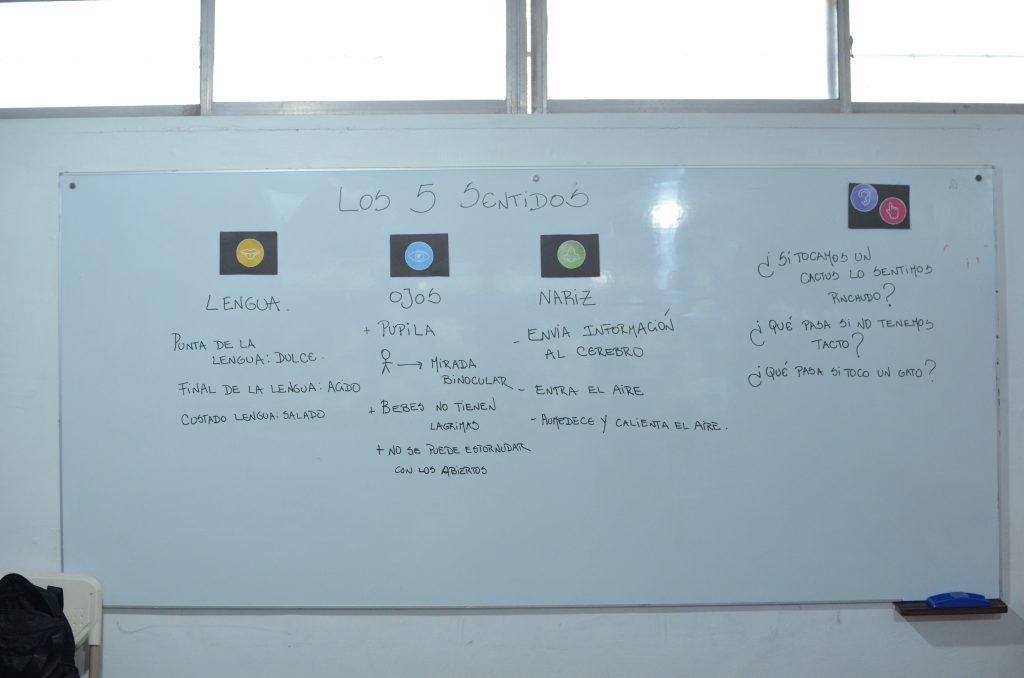 LOS 5 SENTIDOS
LENGUA.
PUNTA DE LA
LENGUA: DULCE.
FINAL DE LA LENGUA: ACIDO
COSTADO LENGUA: SALADO
OJOS
+ PUPILA
→ MIRADA
BINOCULAR
+ BEBES NO TIENEN
LAGRIMAS
+ NO SE PUEDE ESTORNUDAR
CON LOS ABIERTOS
NARIZ
- ENVÍA INFORMACIÓN
AL CEREBRO
- ENTRA EL AIRE
- AUMEDECE Y CALIENTA EL AIRE.
¿ SI TOCAMOS UN
CACTUS LO SENTIMOS
PINCHUDO?
¿ QUÉ PASA SI NO TENEMOS
TACTO?
¿QUÉ PASA SI TOCO UN GATO?